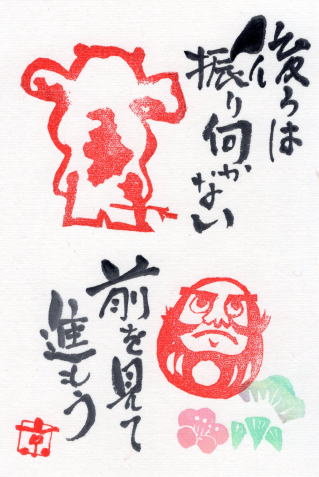 後ろは
振り向かない
前を見て
進もう
京